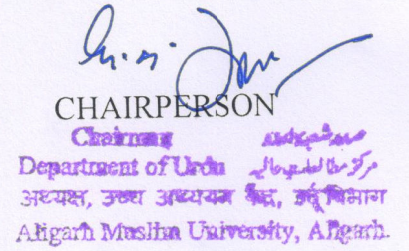 CHAIRPERSON
Chairman
Department of Urdu
अध्यक्ष, उच्च अध्ययन केंद्र, उर्दू विभाग
Aligarh Muslim University, Aligarh.